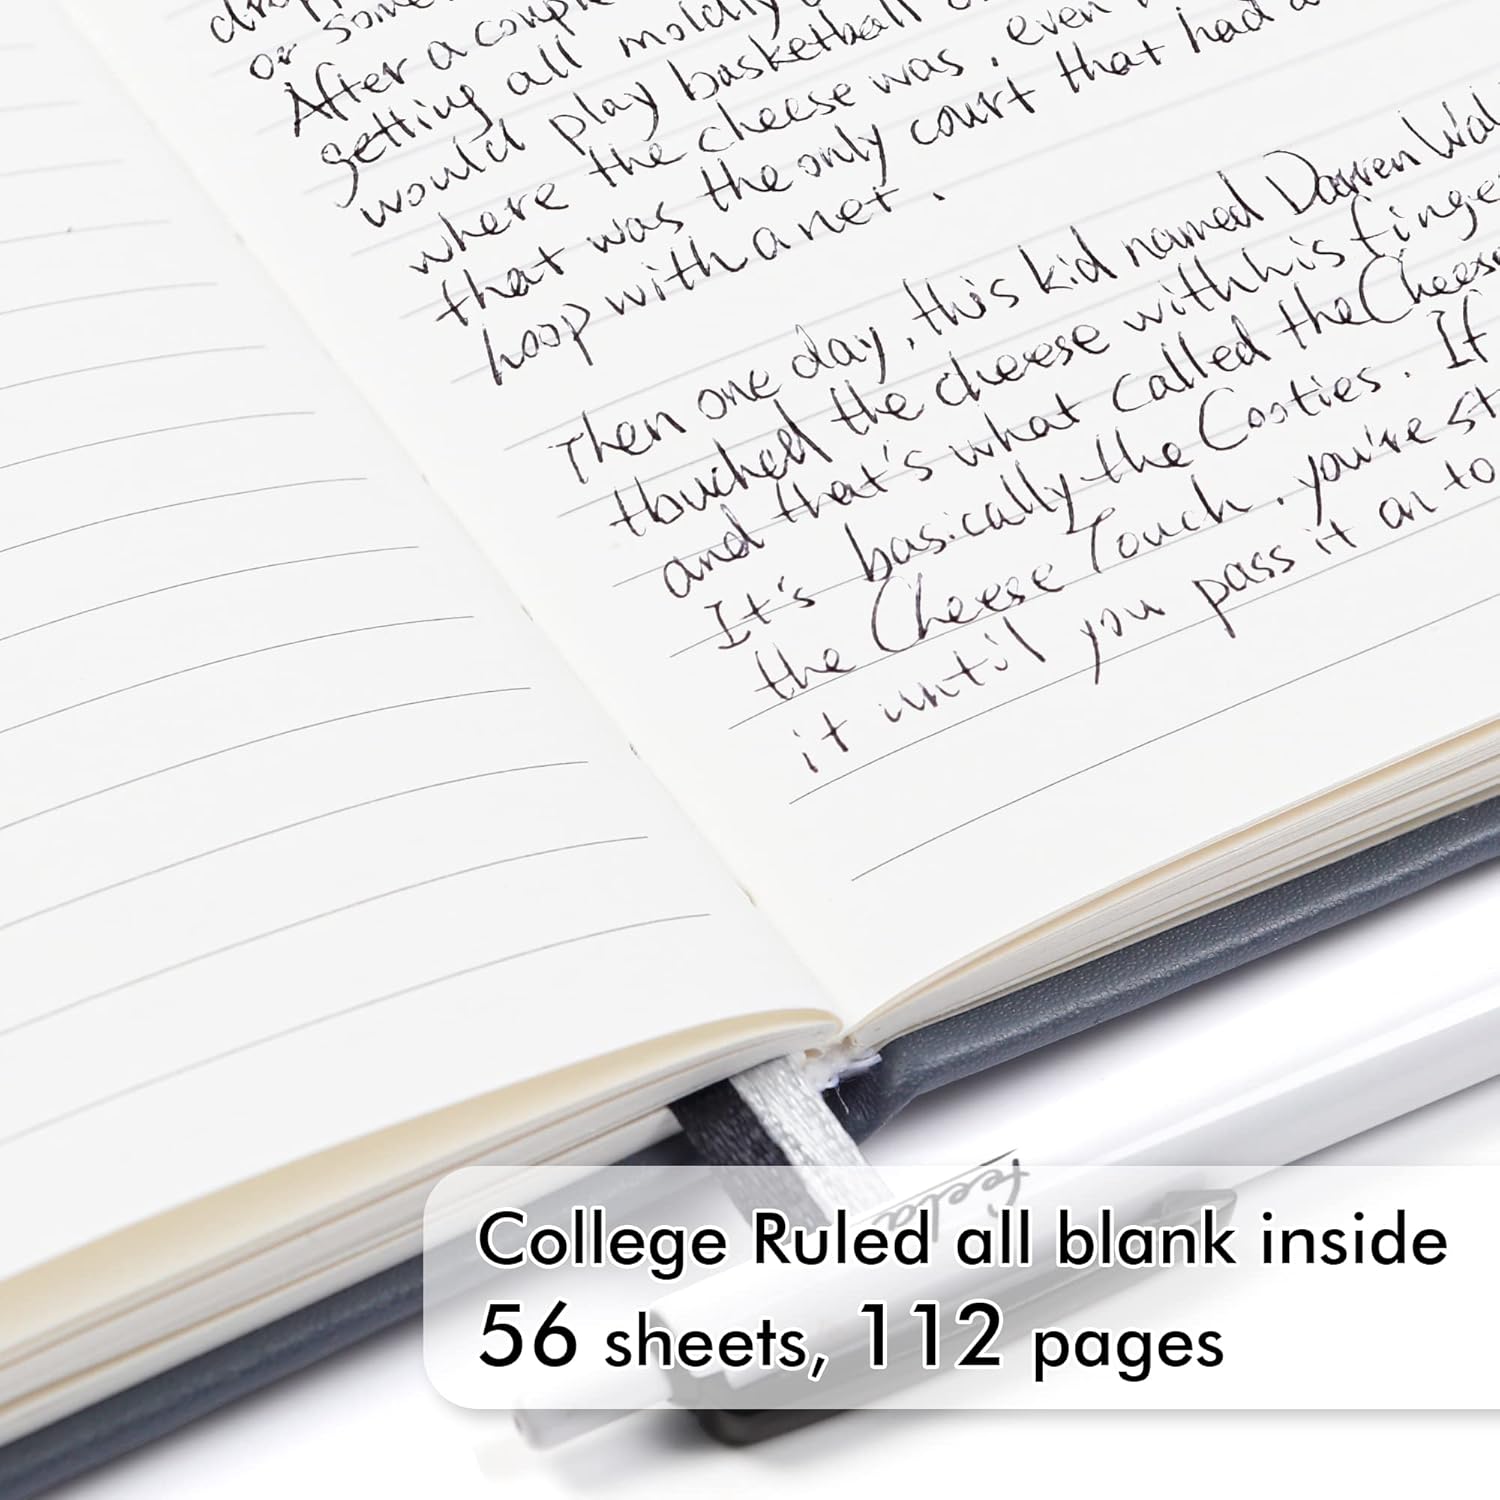 or some
After a couple
getting all moldy
would play basketball
where the cheese was, even
that was the only court that had a
hoop with a net.
Then one day, this kid named Darren Wal
touched the cheese with his finge
and that's what called the Cheese
It's basically the Cooties. If
the Cheese Touch, you're st
it until you pass it on to
feela
College Ruled all blank inside
56 sheets, 112 pages